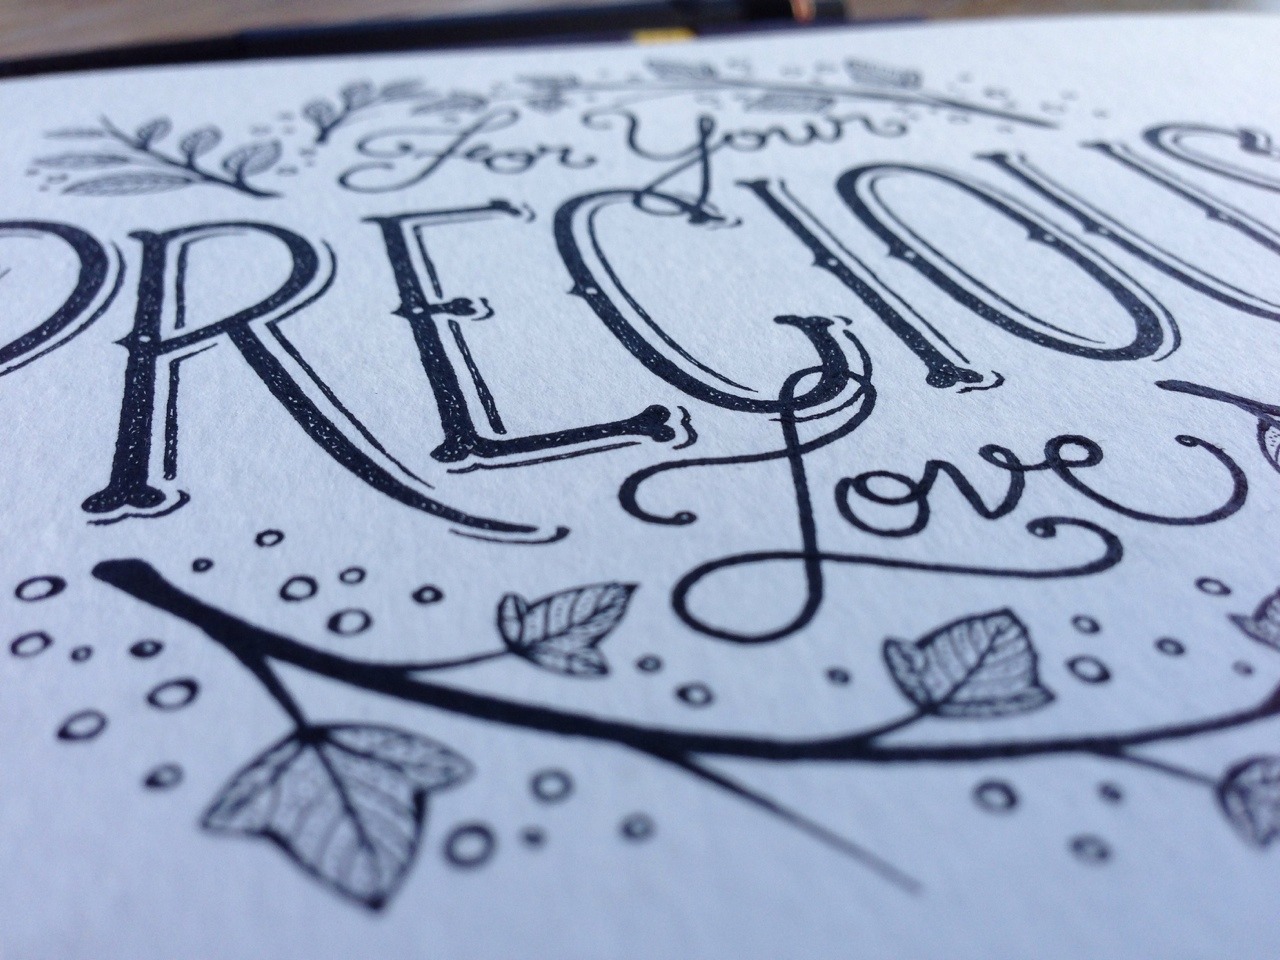 For Your
PRECIOUS
Love